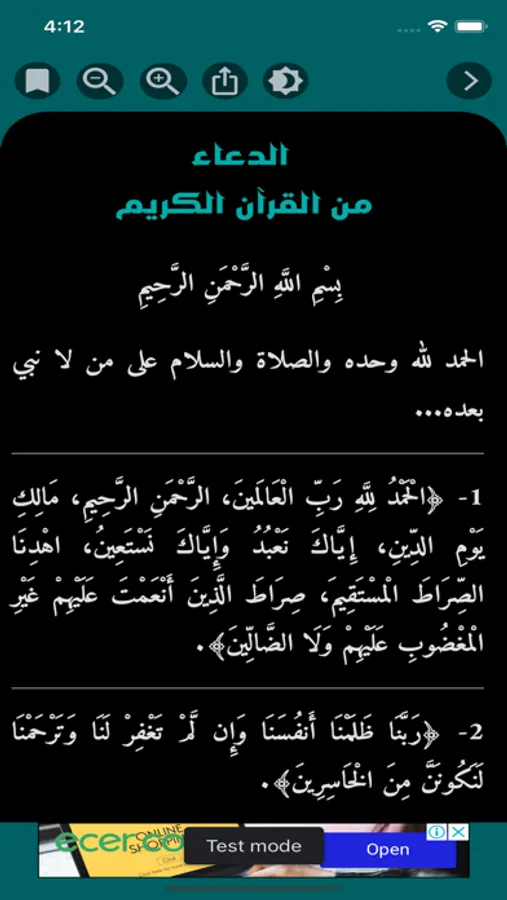 4:12
الدعاء
من القرآن الكريم
بِسْمِ اللَّهِ الرَّحْمَنِ الرَّحِيمِ
الحمد لله وحده والصلاة والسلام على من لا نبي
بعده...
1- ﴿الْحَمْدُ لِلَّهِ رَبِّ الْعَالَمِينَ، الرَّحْمَنِ الرَّحِيمِ، مَالِكِ
يَوْمِ الدِّينِ، إِيَّاكَ نَعْبُدُ وَإِيَّاكَ نَسْتَعِينُ، اهْدِنَا
الصِّرَاطَ الْمْسْتَقِيمَ، صِرَاطَ الَّذِينَ أَنْعَمْتَ عَلَيْهِمْ غَيْرِ
الْمْغْضُوبِ عَلَيْهِمْ وَلَا الضَّالِّينَ﴾.
2- ﴿رَبَّنَا ظَلَمْنَا أَنفُسَنَا وَإِن لَّمْ تَغْفِرْ لَنَا وَتَرْحَمْنَا
لَنَكُونَنَّ مِنَ الْخَاسِرِينَ﴾.
ONLINE
SHOPPING
Test mode
Open